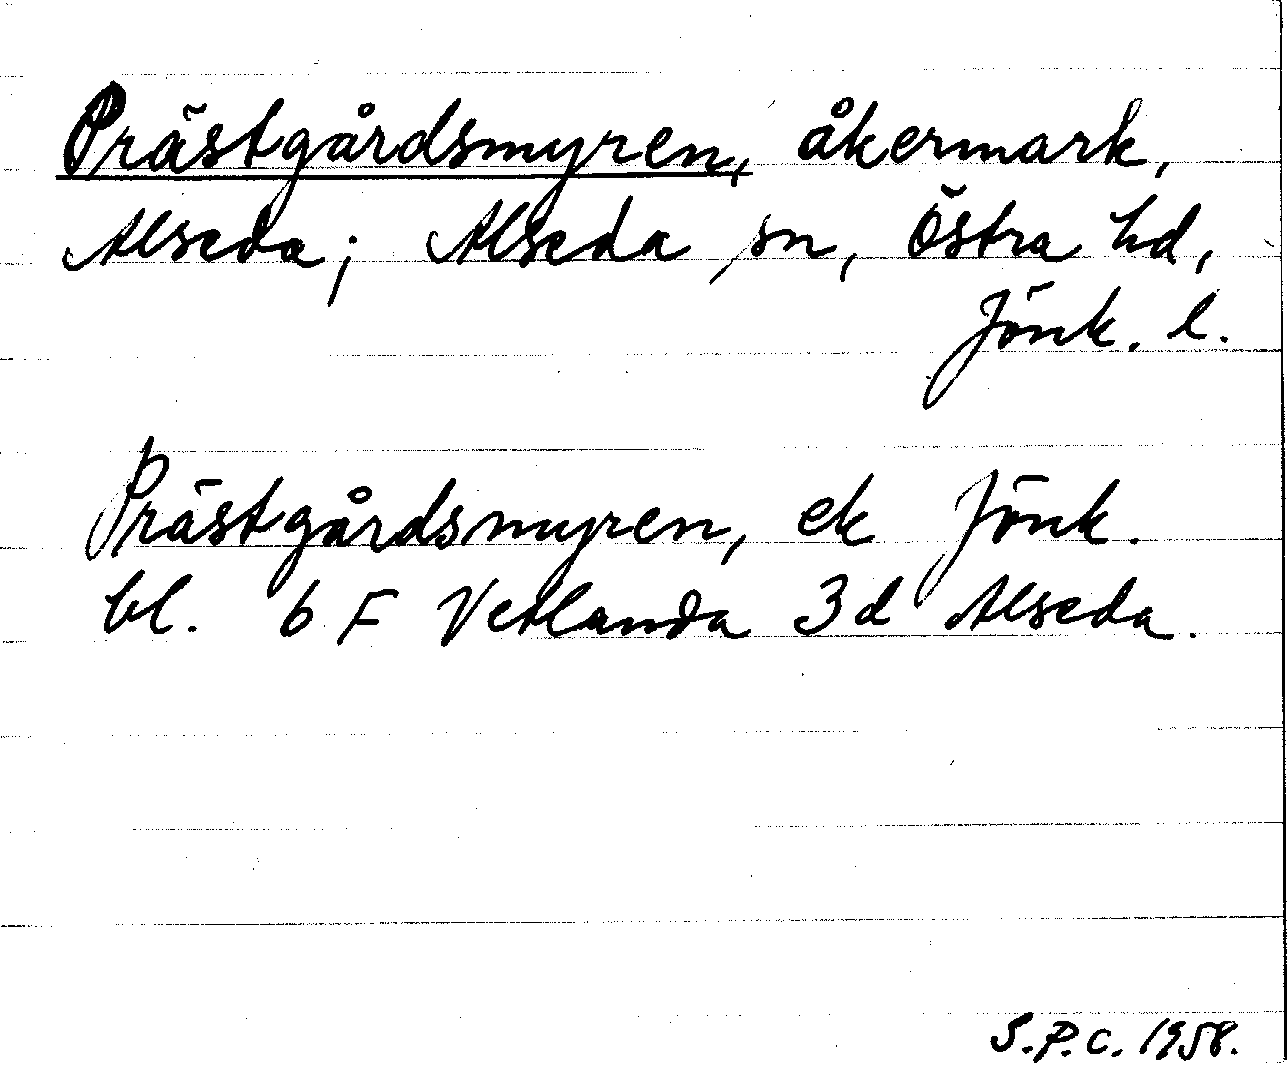 Prästgårdsmyren, åkermark,
Alseda; Alseda sn, Östra hd,
Jönk. l.
Prästgårdsmyren, ek Jönk.
bl. 6 F Vetlanda 3d Alseda.
S.P.C. 1958.